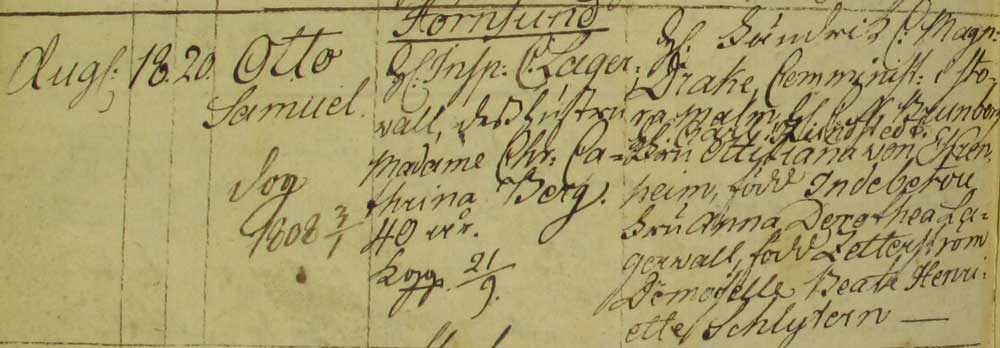 Augs: 18. 20. Otto
Samuel.
dog
1808 3/1
Hornsund
H. Insp: C. Lager-
wall, dess hustru
Madame Chr: Ca-
thrina Berg.
40 år.
Kÿgg. 21/9.
H. Hindrik C. Magn:
Drake, Comminist: i Sto-
ra Malm, H. C. N. Brunberg
H. Carl Lindstedt.
Fru Ottiliana von Ehren
heim, född Indebetou
Fru Anna Dorothea La-
gerwall, född Letterström
Demoiselle Beata Henri-
ette Schlytern —